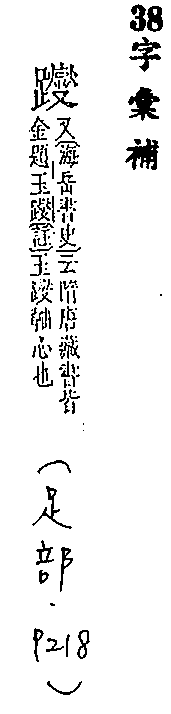 38字彙補
躞
又海岳書史云隋唐藏書皆
金題玉躞註玉躞軸心也
(足部·P218)